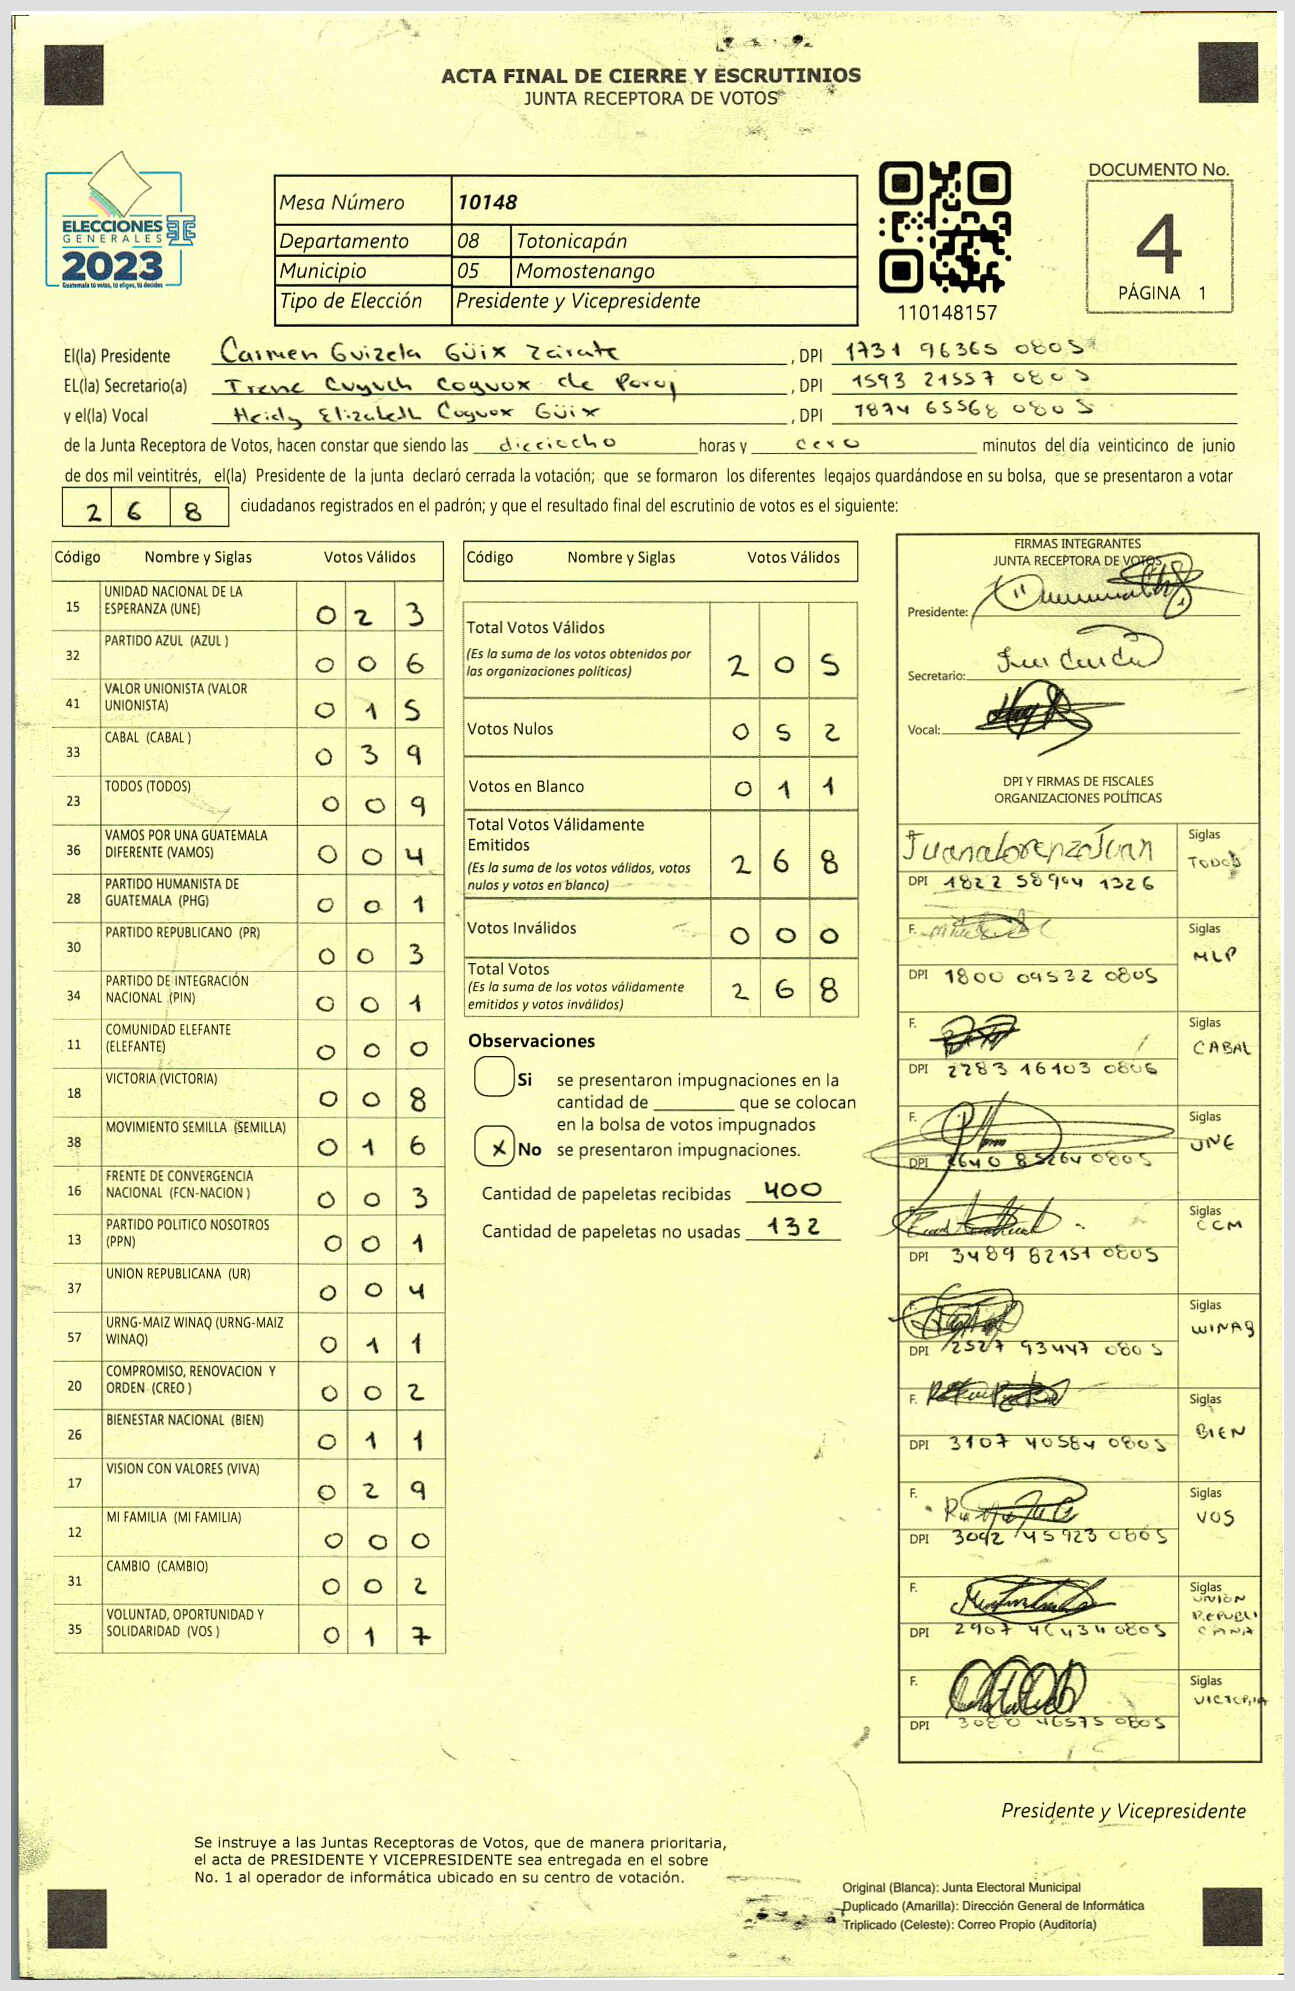 ACTA FINAL DE CIERRE Y ESCRUTINIOS
JUNTA RECEPTORA DE VOTOS
ELECCIONES
GENERALES
2023
Guatemala tú votas, tú eliges, tú decides
Mesa Número 10148
Departamento 08 Totonicapán
Municipio 05 Momostenango
Tipo de Elección Presidente y Vicepresidente
110148157
DOCUMENTO No.
4
PÁGINA 1
El(la) Presidente Carmen Guizela Güix Zárate, DPI 1731 96365 0805
EL(la) Secretario(a) Irene Cuyuch Coguox de Poroj, DPI 1593 21557 0805
y el(la) Vocal Heidy Elizabeth Coguox Güix, DPI 7874 65568 0805
de la Junta Receptora de Votos, hacen constar que siendo las dieciocho horas y cero minutos del día veinticinco de junio
de dos mil veintitrés, el(la) Presidente de la junta declaró cerrada la votación; que se formaron los diferentes legajos guardándose en su bolsa, que se presentaron a votar
268 ciudadanos registrados en el padrón; y que el resultado final del escrutinio de votos es el siguiente:
Código Nombre y Siglas Votos Válidos
15 UNIDAD NACIONAL DE LA ESPERANZA (UNE) 0 2 3
32 PARTIDO AZUL (AZUL ) 0 0 6
41 VALOR UNIONISTA (VALOR UNIONISTA) 0 1 5
33 CABAL (CABAL ) 0 3 9
23 TODOS (TODOS) 0 0 9
36 VAMOS POR UNA GUATEMALA DIFERENTE (VAMOS) 0 0 4
28 PARTIDO HUMANISTA DE GUATEMALA (PHG) 0 0 1
30 PARTIDO REPUBLICANO (PR) 0 0 3
34 PARTIDO DE INTEGRACIÓN NACIONAL (PIN) 0 0 1
11 COMUNIDAD ELEFANTE (ELEFANTE) 0 0 0
18 VICTORIA (VICTORIA) 0 0 8
38 MOVIMIENTO SEMILLA (SEMILLA) 0 1 6
16 FRENTE DE CONVERGENCIA NACIONAL (FCN-NACION ) 0 0 3
13 PARTIDO POLITICO NOSOTROS (PPN) 0 0 1
37 UNION REPUBLICANA (UR) 0 0 4
57 URNG-MAIZ WINAQ (URNG-MAIZ WINAQ) 0 1 1
20 COMPROMISO, RENOVACION Y ORDEN (CREO ) 0 0 2
26 BIENESTAR NACIONAL (BIEN) 0 1 1
17 VISION CON VALORES (VIVA) 0 2 9
12 MI FAMILIA (MI FAMILIA) 0 0 0
31 CAMBIO (CAMBIO) 0 0 2
35 VOLUNTAD, OPORTUNIDAD Y SOLIDARIDAD (VOS ) 0 1 7
Código Nombre y Siglas Votos Válidos
Total Votos Válidos
(Es la suma de los votos obtenidos por
las organizaciones políticas) 2 0 5
Votos Nulos 0 5 2
Votos en Blanco 0 1 1
Total Votos Válidamente
Emitidos
(Es la suma de los votos válidos, votos
nulos y votos en blanco) 2 6 8
Votos Inválidos 0 0 0
Total Votos
(Es la suma de los votos válidamente
emitidos y votos inválidos) 2 6 8
Observaciones
Si se presentaron impugnaciones en la
cantidad de ________ que se colocan
en la bolsa de votos impugnados
X No se presentaron impugnaciones.
Cantidad de papeletas recibidas 400
Cantidad de papeletas no usadas 132
FIRMAS INTEGRANTES
JUNTA RECEPTORA DE VOTOS
Presidente:
Secretario:
Vocal:
DPI Y FIRMAS DE FISCALES
ORGANIZACIONES POLÍTICAS
Juana Lorenzo Juan Siglas TODOS
DPI 1822 58904 1326
F. Siglas MLP
DPI 1800 04532 0805
F. Siglas CABAL
DPI 2283 16103 0806
F. Siglas UNE
DPI 2640 85264 0805
Siglas CCM
DPI 3489 82151 0805
F. Siglas WINAQ
DPI 2527 93447 0805
F. Siglas BIEN
DPI 3107 40584 0805
F. Siglas VOS
DPI 3092 45923 0805
F. Siglas UNION REPUBLICANA
DPI 2907 46434 0805
F. Siglas VICTORIA
DPI 3080 46575 0805
Presidente y Vicepresidente
Se instruye a las Juntas Receptoras de Votos, que de manera prioritaria,
el acta de PRESIDENTE Y VICEPRESIDENTE sea entregada en el sobre
No. 1 al operador de informática ubicado en su centro de votación.
Original (Blanca): Junta Electoral Municipal
Duplicado (Amarilla): Dirección General de Informática
Triplicado (Celeste): Correo Propio (Auditoría)